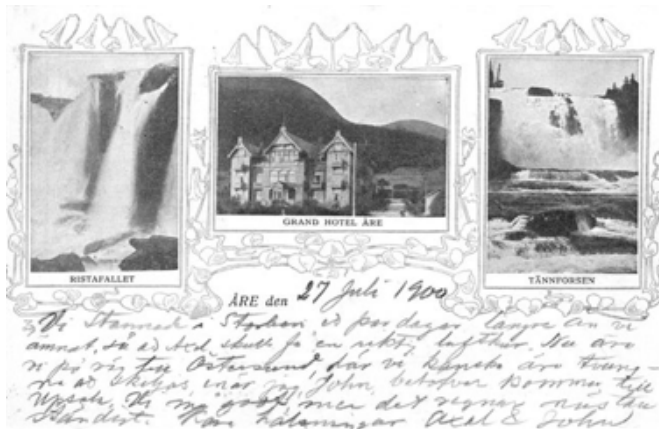 GRAND HOTEL ÅRE
RISTAFALLET
TÄNNFORSEN
ÅRE den 27 Juli 1900
Vi Stannade i Storlien ett par dagar längre än vi
ämnat, så att Axel skulle få en riktig luftkur. Nu äro
vi på väg till Östersund, där vi kanske äro tvung-
na att skiljas, enär jag, John, behöver komma till
Upsala. Vi må godt, men det regnar
ständigt. Kära hälsningar Axel & John